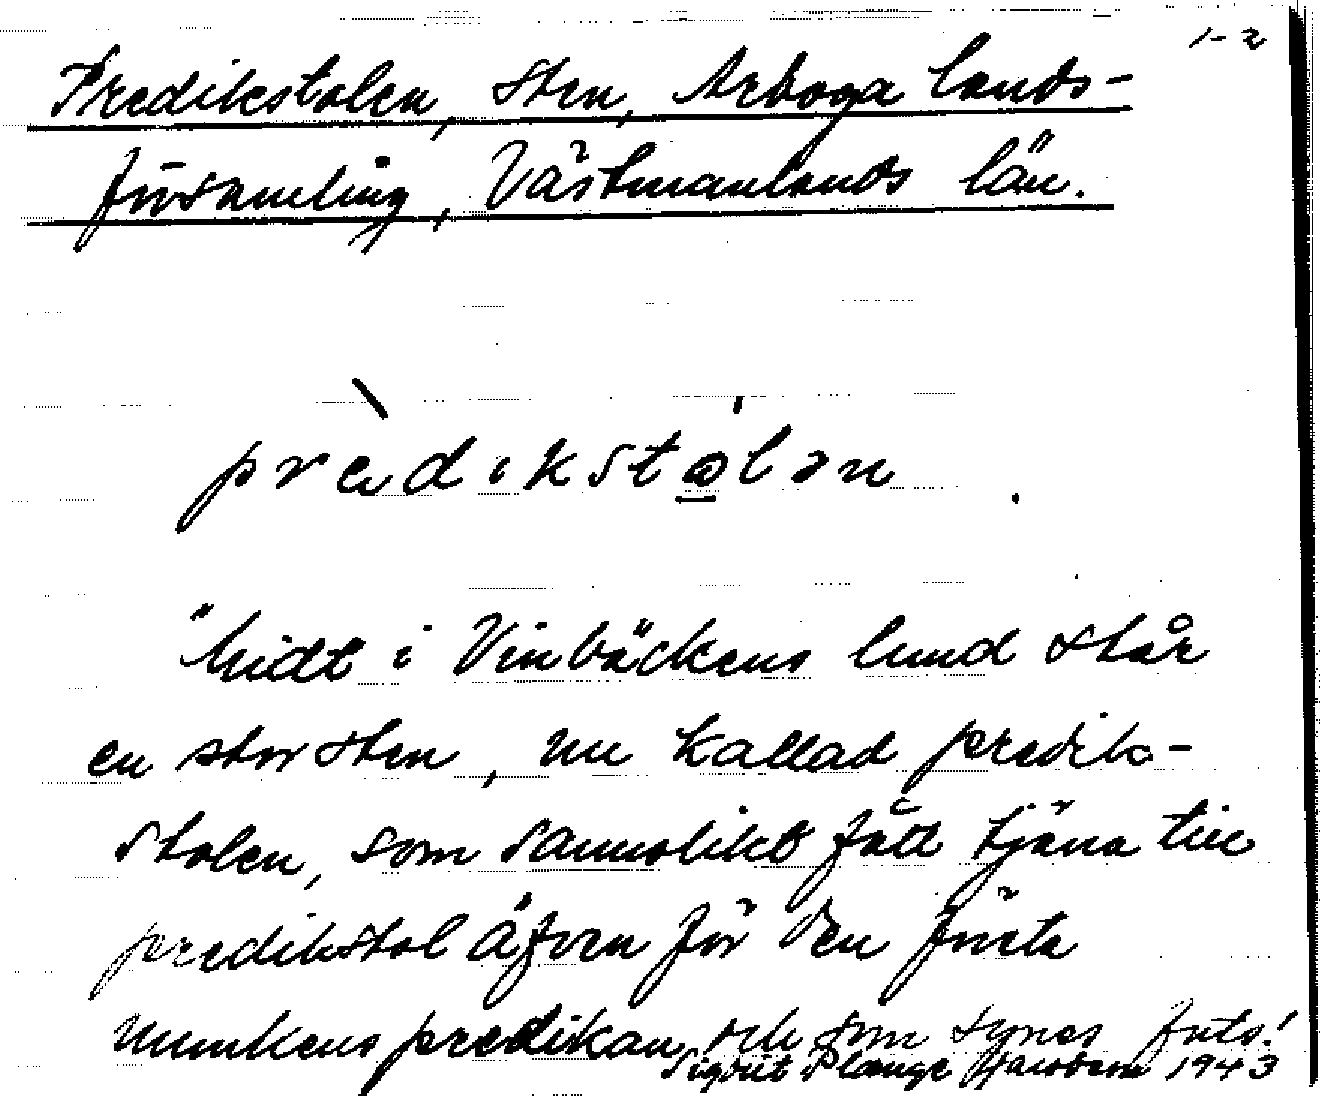 1-2
Predikstolen, Sten, Arboga lands-
församling, Västmanlands län.
prèdikstɷ̲́lən.
"Midt i Vinbäckens lund står
en stor sten, nu kallad predik-
stolen, som sannolikt fått tjäna till
predikstol äfven för den första
munkens predikan, och som synes
Sigrit Plænge Jacobson 1943